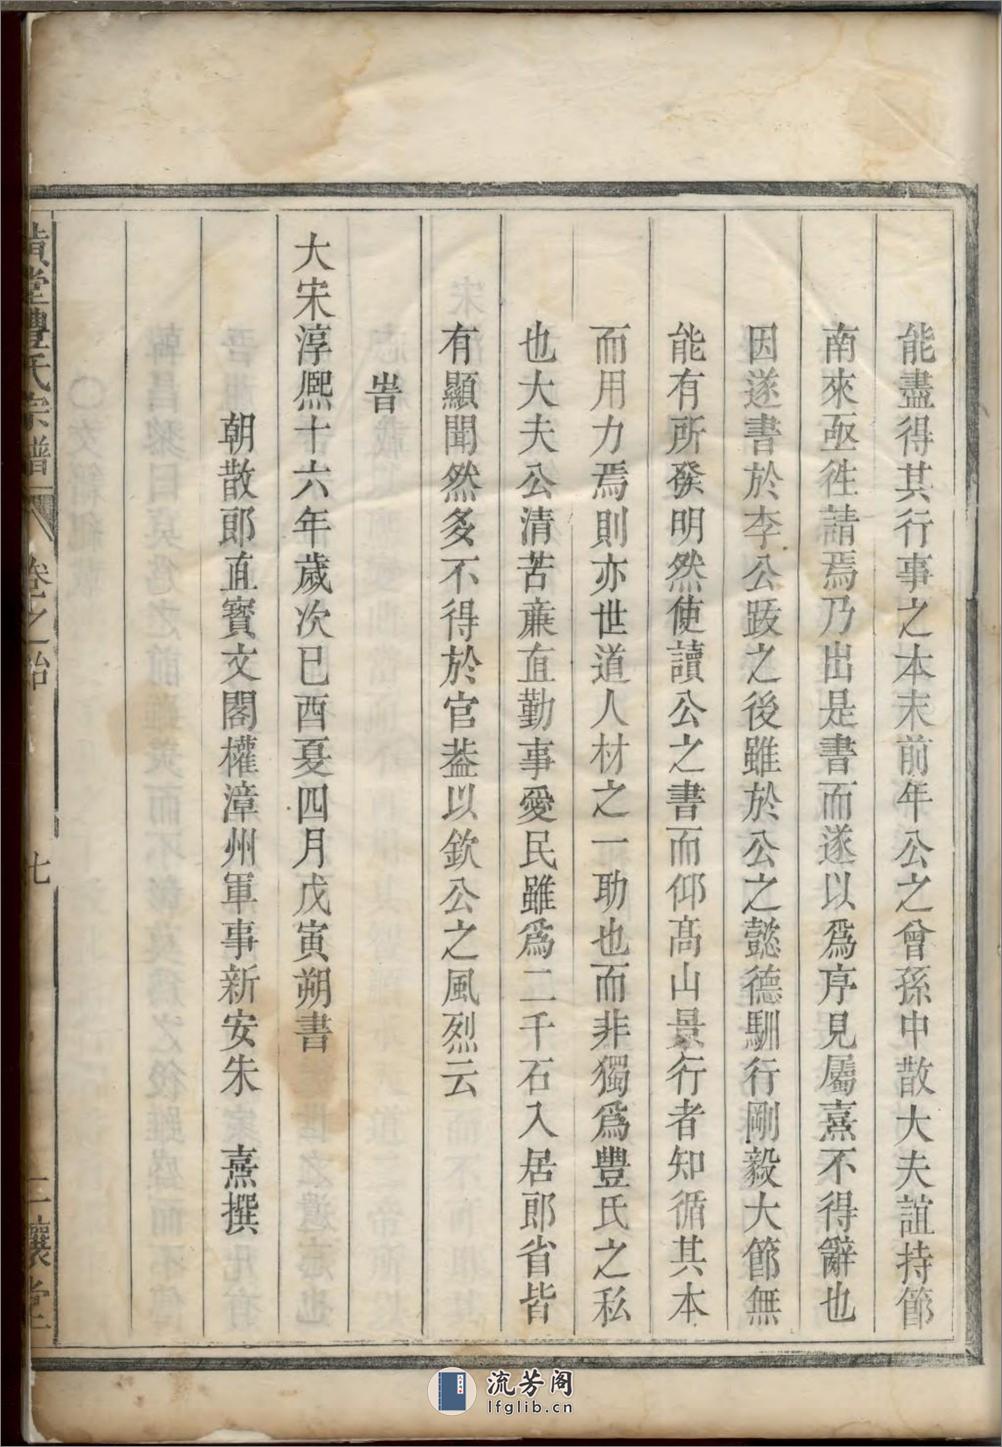 能盡得其行事之本末前年公之曾孫中散大夫誼持節
南來亟徃請焉乃出是書而遂以爲序見屬熹不得辭也
因遂書於李公跋之後雖於公之懿德馴行剛毅大節無
能有所發明然使讀公之書而仰髙山景行者知循其本
而用力焉則亦世道人材之一助也而非獨爲豐氏之私
也大夫公清苦亷直勤事愛民雖爲二千石入居郎省皆
有顯聞然多不得於官葢以欽公之風烈云
旹
大宋淳熙十六年歲次已酉夏四月戊寅朔書
朝散郎直寳文閣權漳州軍事新安朱 熹撰
堂豐氏宗譜 卷之 七 堂
流芳阁
lfglib.cn